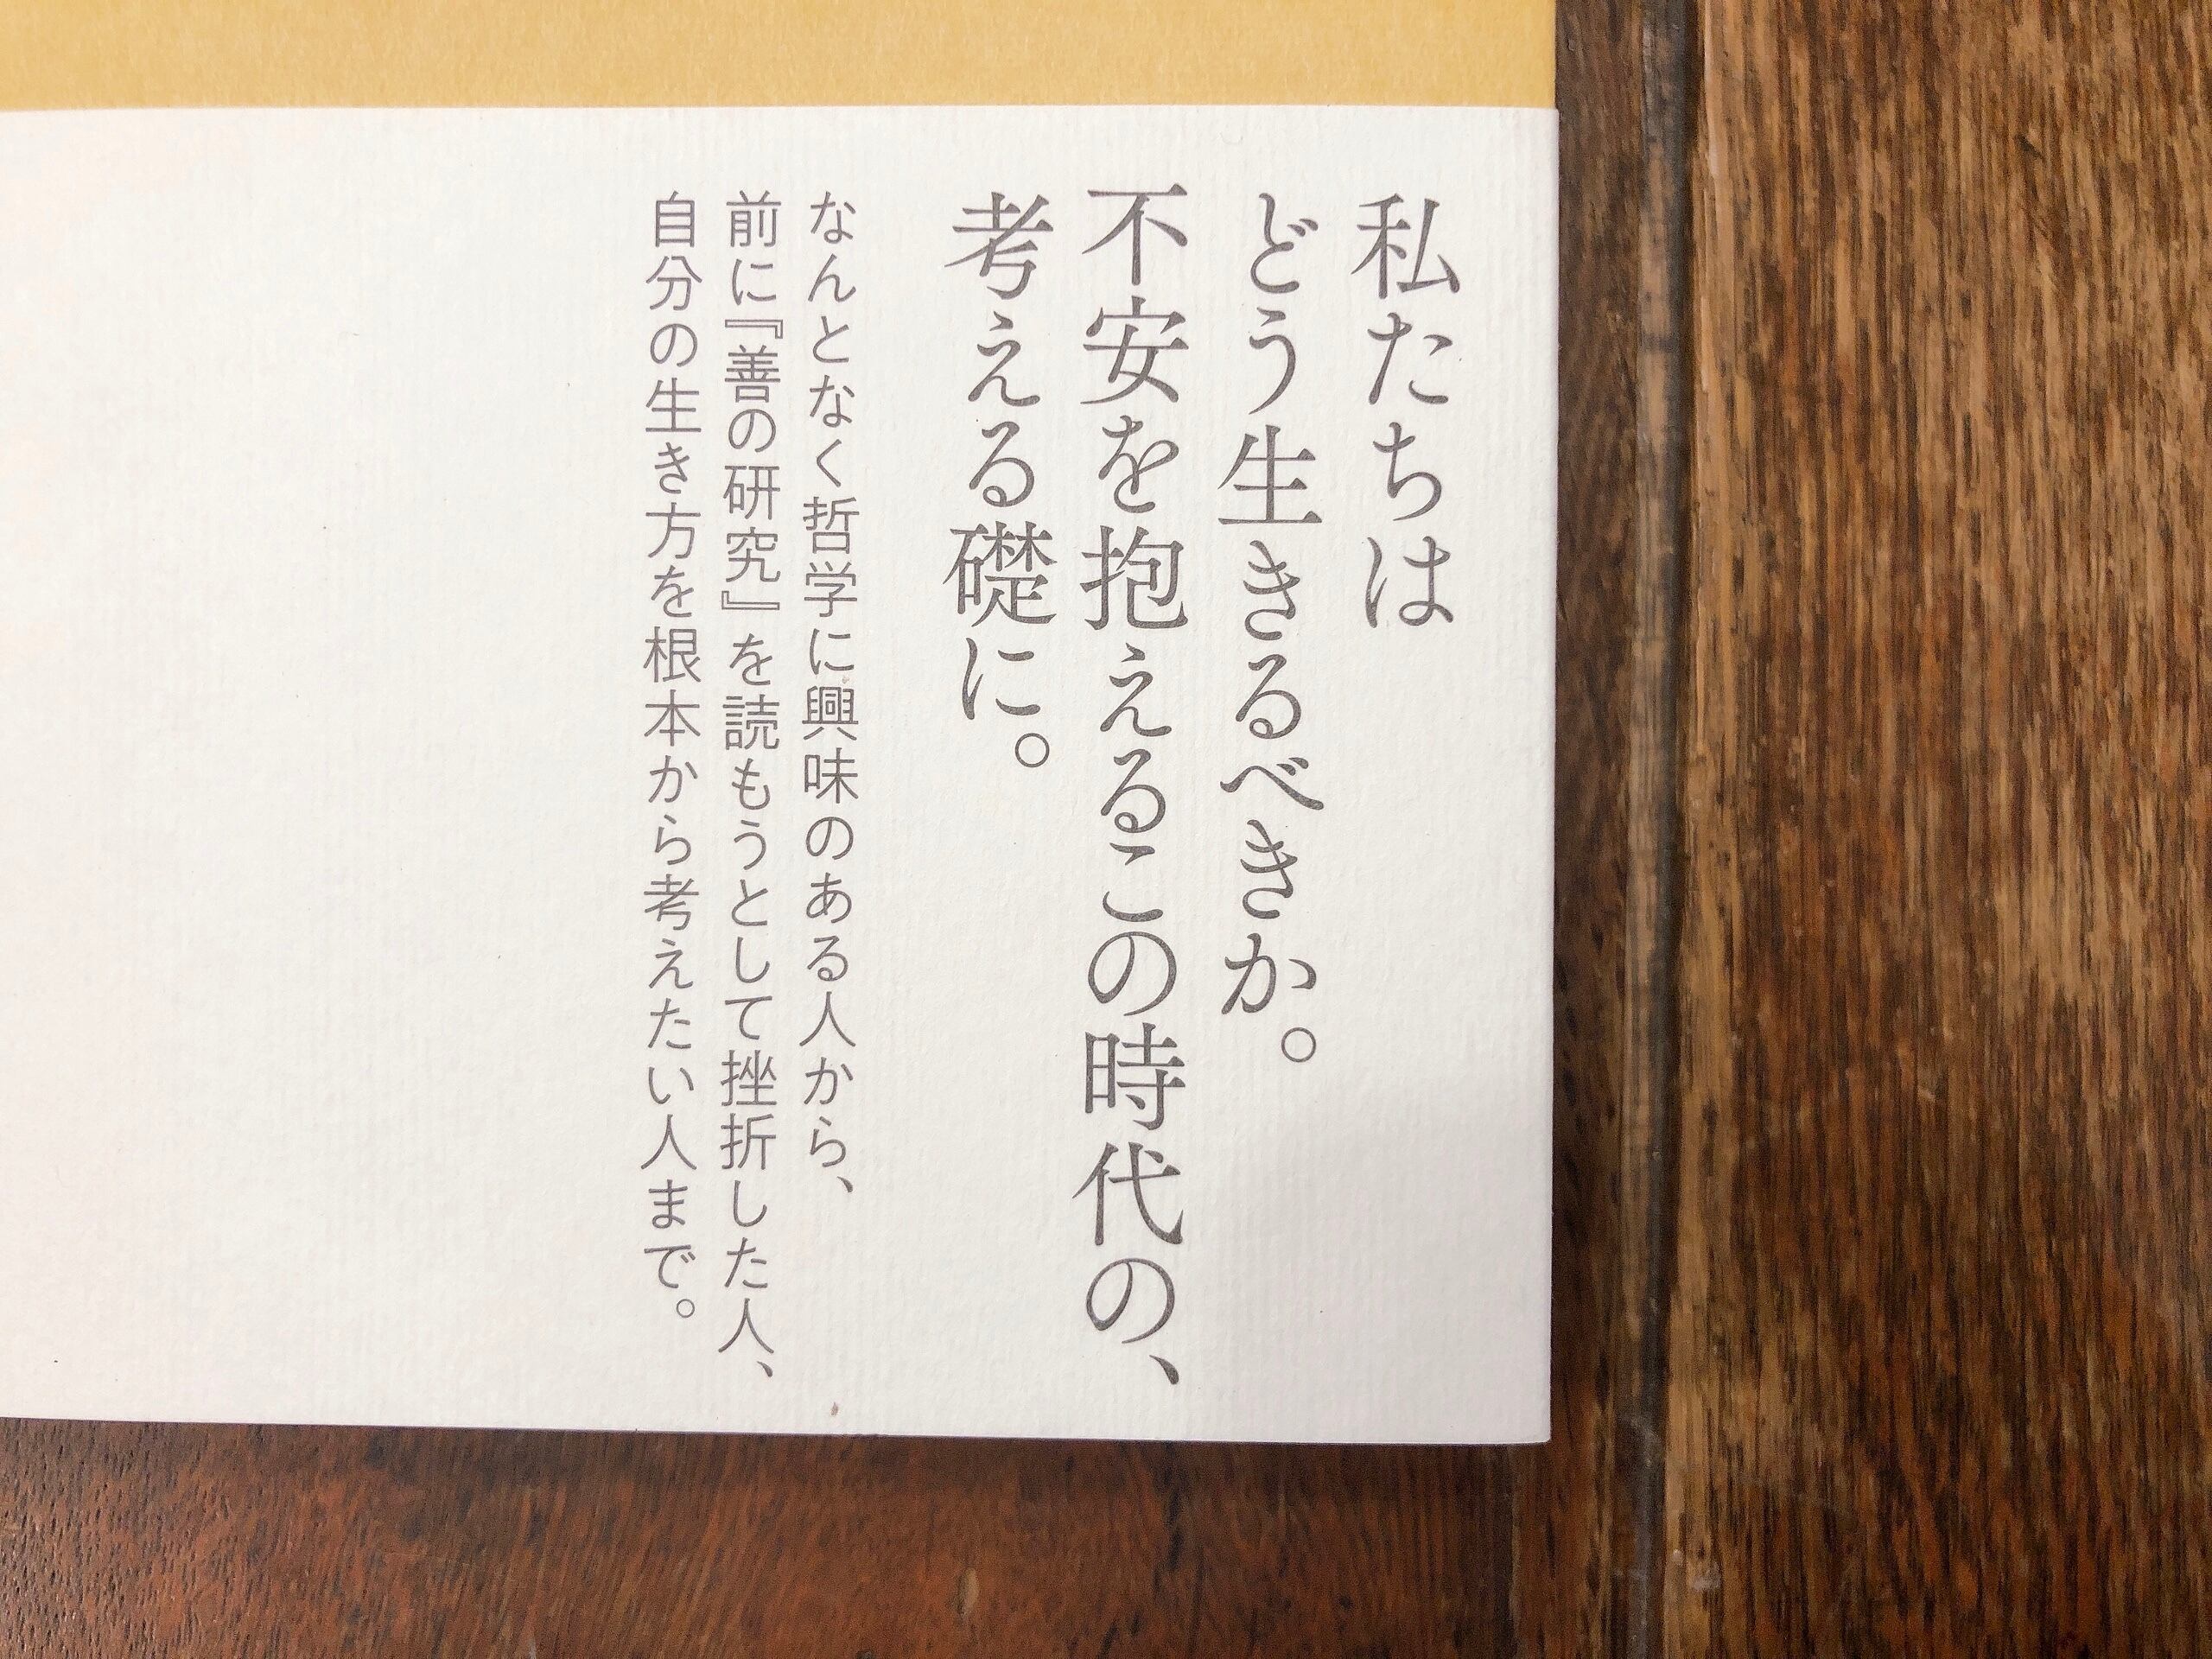 私たちは
どう生きるべきか。
不安を抱えるこの時代の、
考える礎に。
なんとなく哲学に興味のある人から、
前に『善の研究』を読もうとして挫折した人、
自分の生き方を根本から考えたい人まで。